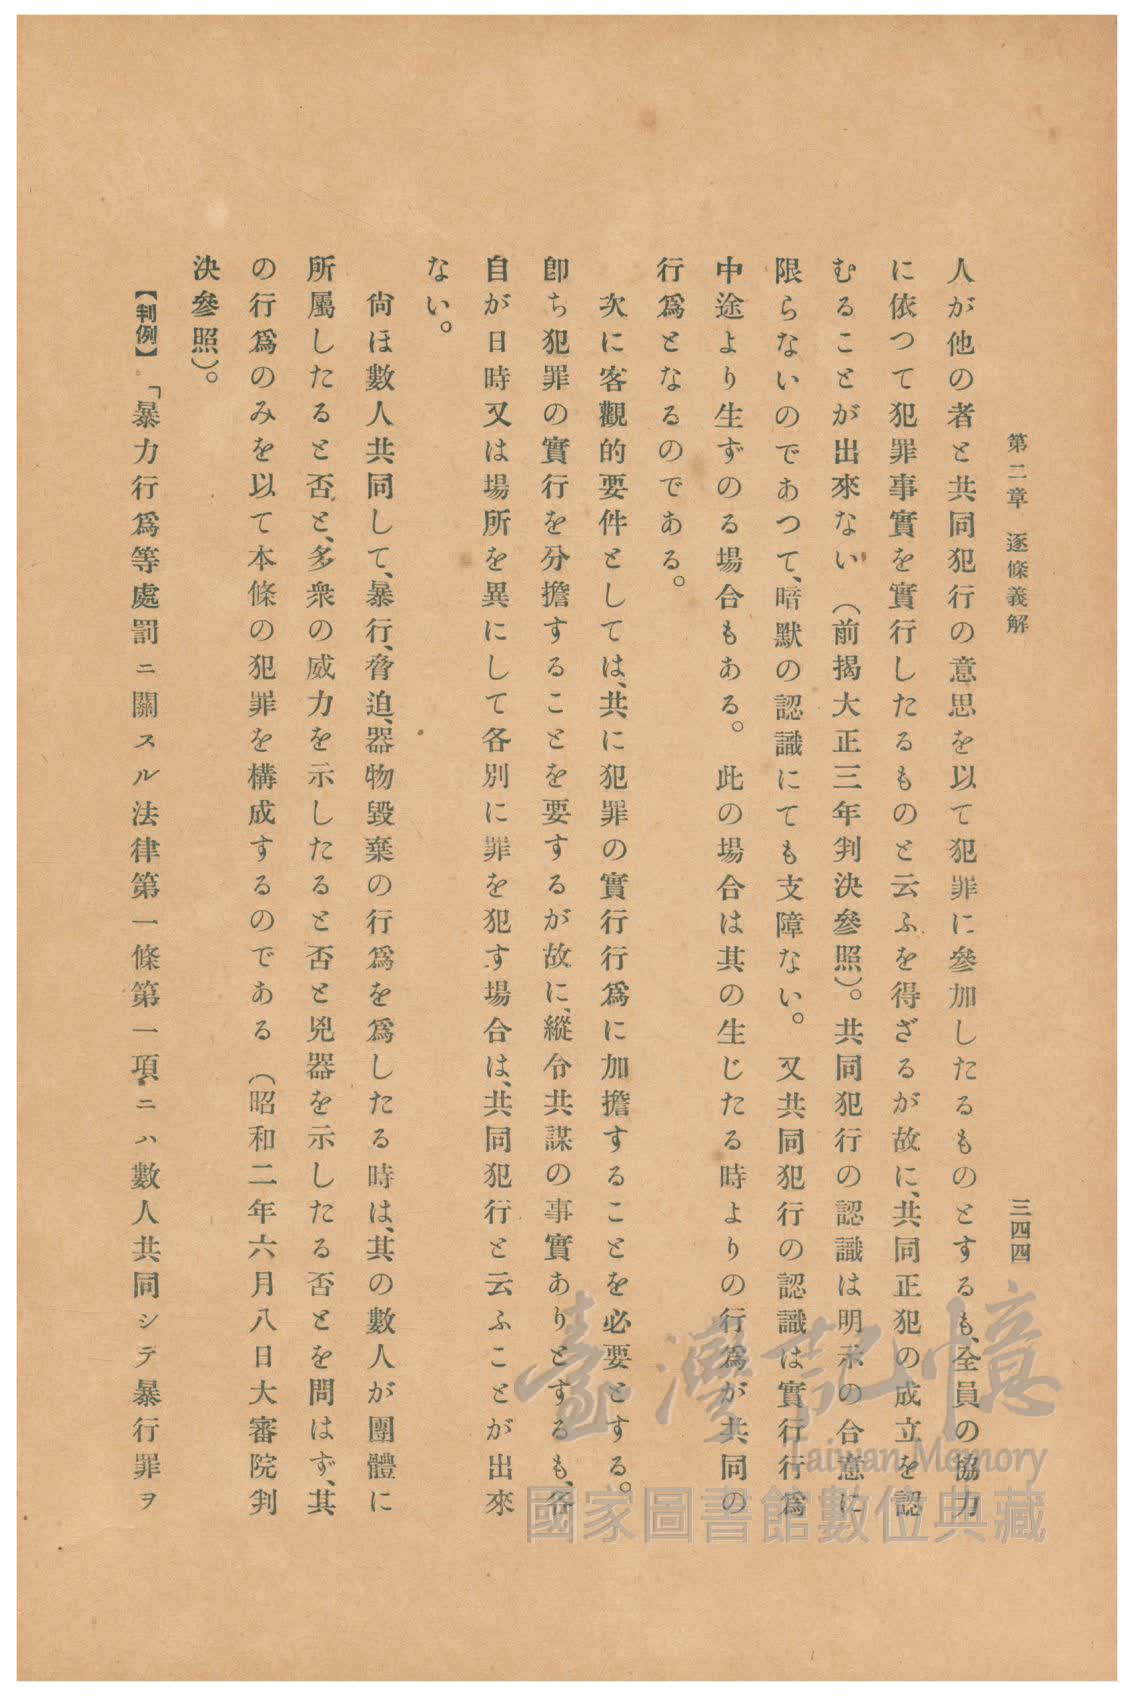 第二章　逐條義解
三四四
人が他の者と共同犯行の意思を以て犯罪に參加したるものとするも、全員の協力
に依つて犯罪事實を實行したるものと云ふを得ざるが故に、共同正犯の成立を認
むることが出來ない（前揭大正三年判決參照）。共同犯行の認識は明示の合意に
限らないのであつて、暗默の認識にても支障ない。又共同犯行の認識は實行行爲
中途より生ずのる場合もある。此の場合は其の生じたる時よりの行爲が共同の
行爲となるのである。
次に客觀的要件としては、共に犯罪の實行行爲に加擔することを必要とする。
卽ち犯罪の實行を分擔することを要するが故に、縱令共謀の事實ありとするも、各
自が日時又は場所を異にして各別に罪を犯す場合は、共同犯行と云ふことが出來
ない。
尙ほ數人共同して、暴行、脅迫、器物毀棄の行爲を爲したる時は、其の數人が團體に
所屬したると否と、多衆の威力を示したると否と兇器を示したる否とを問はず、其
の行爲のみを以て本條の犯罪を構成するのである（昭和二年六月八日大審院判
決參照）。
【判例】「暴力行爲等處罰ニ關スル法律第一條第一項ニハ數人共同シテ暴行罪ヲ
臺灣記憶
Taiwan Memory
國家圖書館數位典藏